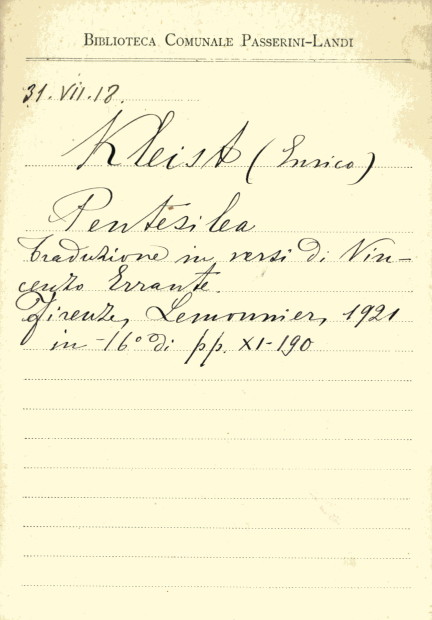 BIBLIOTECA COMUNALE PASSERINI-LANDI
31.VII.18.
Kleist (Enrico)
Pentesilea
traduzione in versi di Vin-
cenzo Errante.
Firenze, Lemonnier, 1921
in-16° di pp. XI-190